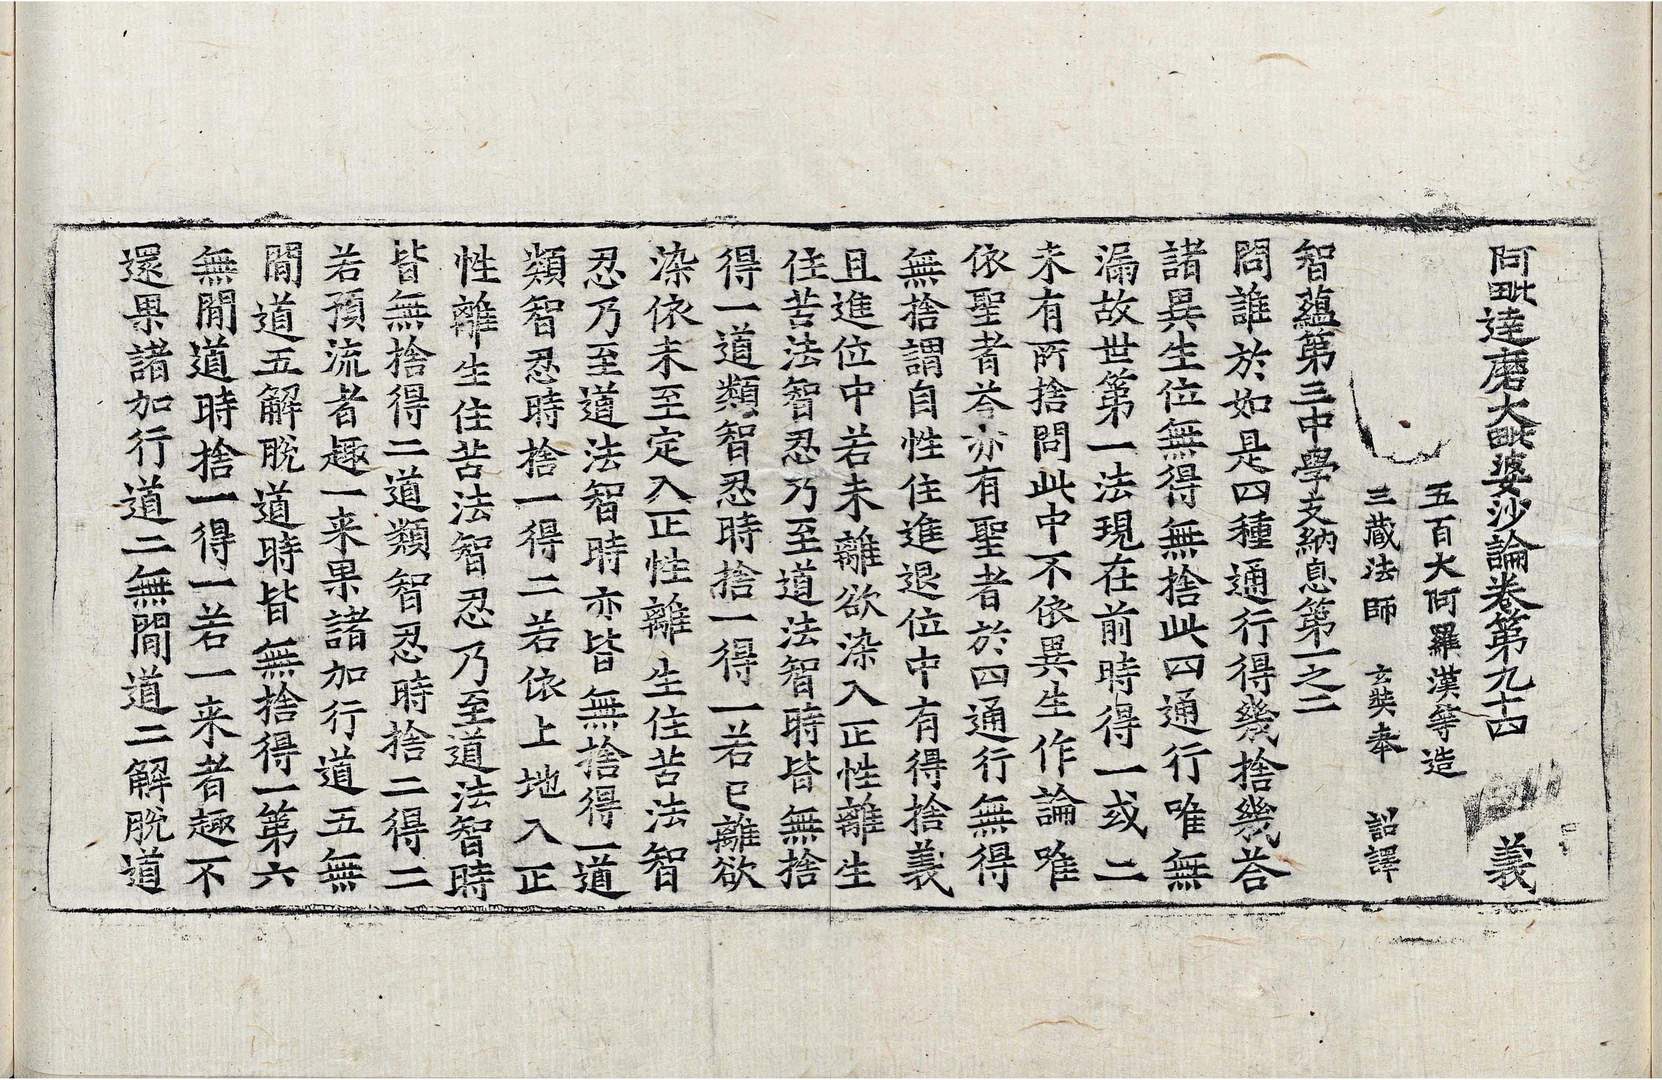 阿毗達磨大毗婆沙論卷第九十四 義
五百大阿羅漢等造
三藏法師 玄奘奉 詔譯
智蘊第三中學支納息第一之二
問誰於如是四種通行得幾捨幾荅
諸異生位無得無捨此四通行唯無
漏故世第一法現在前時得一或二
未有所捨問此中不依異生作論唯
依聖者荅亦有聖者於四通行無得
無捨謂自性住進退位中有得捨義
且進位中若未離欲染入正性離生
住苦法智忍乃至道法智時皆無捨
得一道類智忍時捨一得一若已離欲
染依未至定入正性離生住苦法智
忍乃至道法智時亦皆無捨得一道
類智忍時捨一得二若依上地入正
性離生住苦法智忍乃至道法智時
皆無捨得二道類智忍時捨二得二
若預流者趣一来果諸加行道五無
間道五解脫道時皆無捨得一第六
無間道時捨一得一若一来者趣不
還果諸加行道二無間道二解脫道